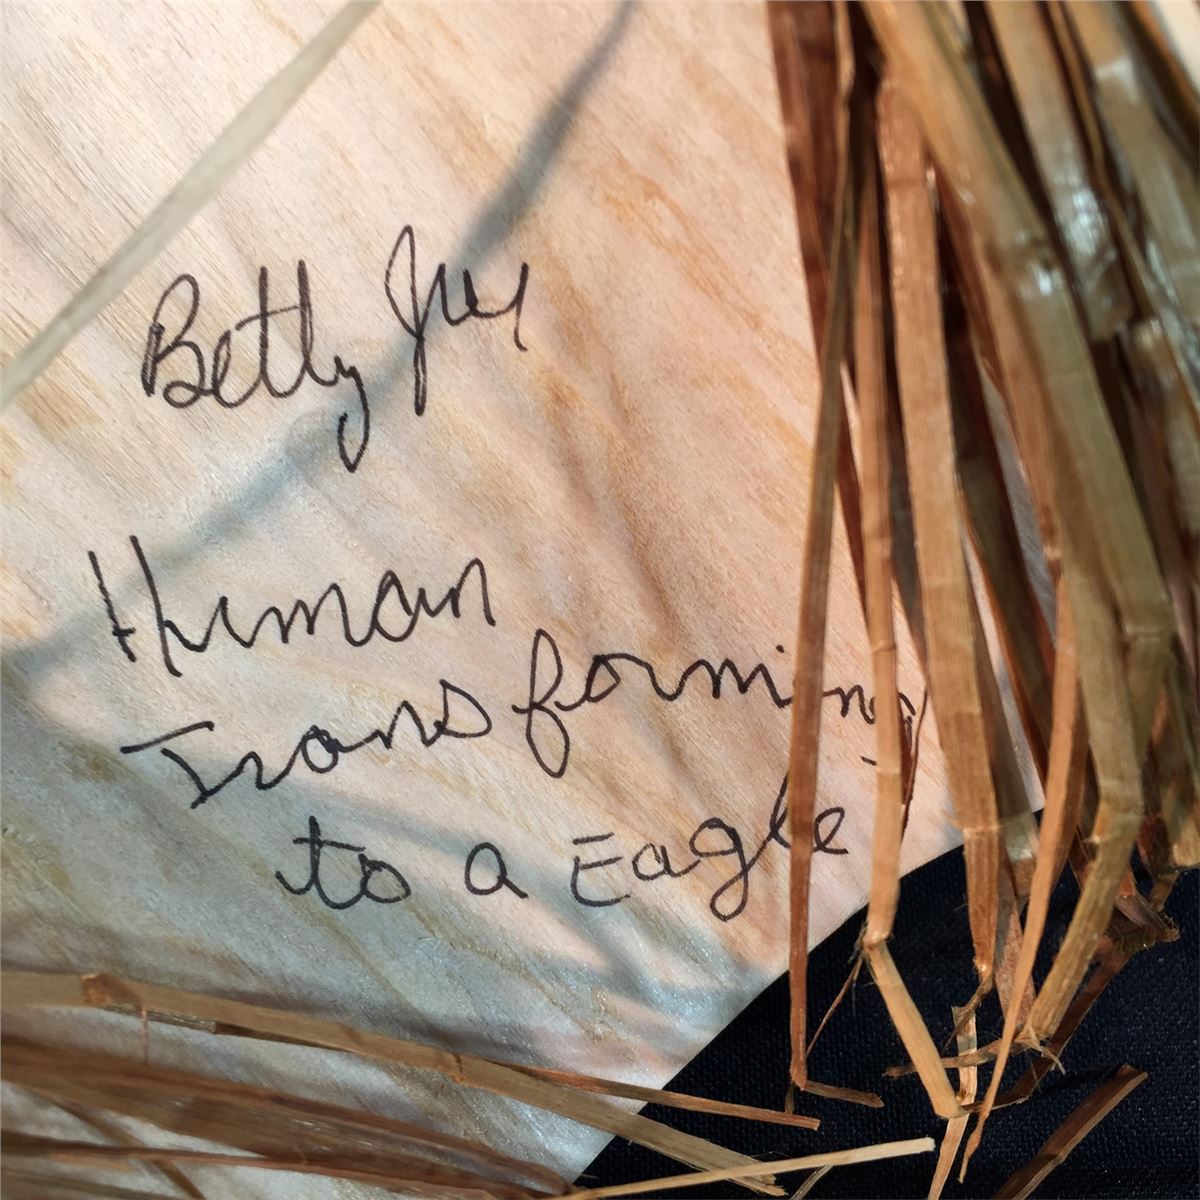 Betty
Human
Transforming
to a Eagle